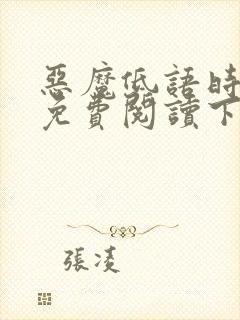 惡魔低語時
免費閱讀下
張凌